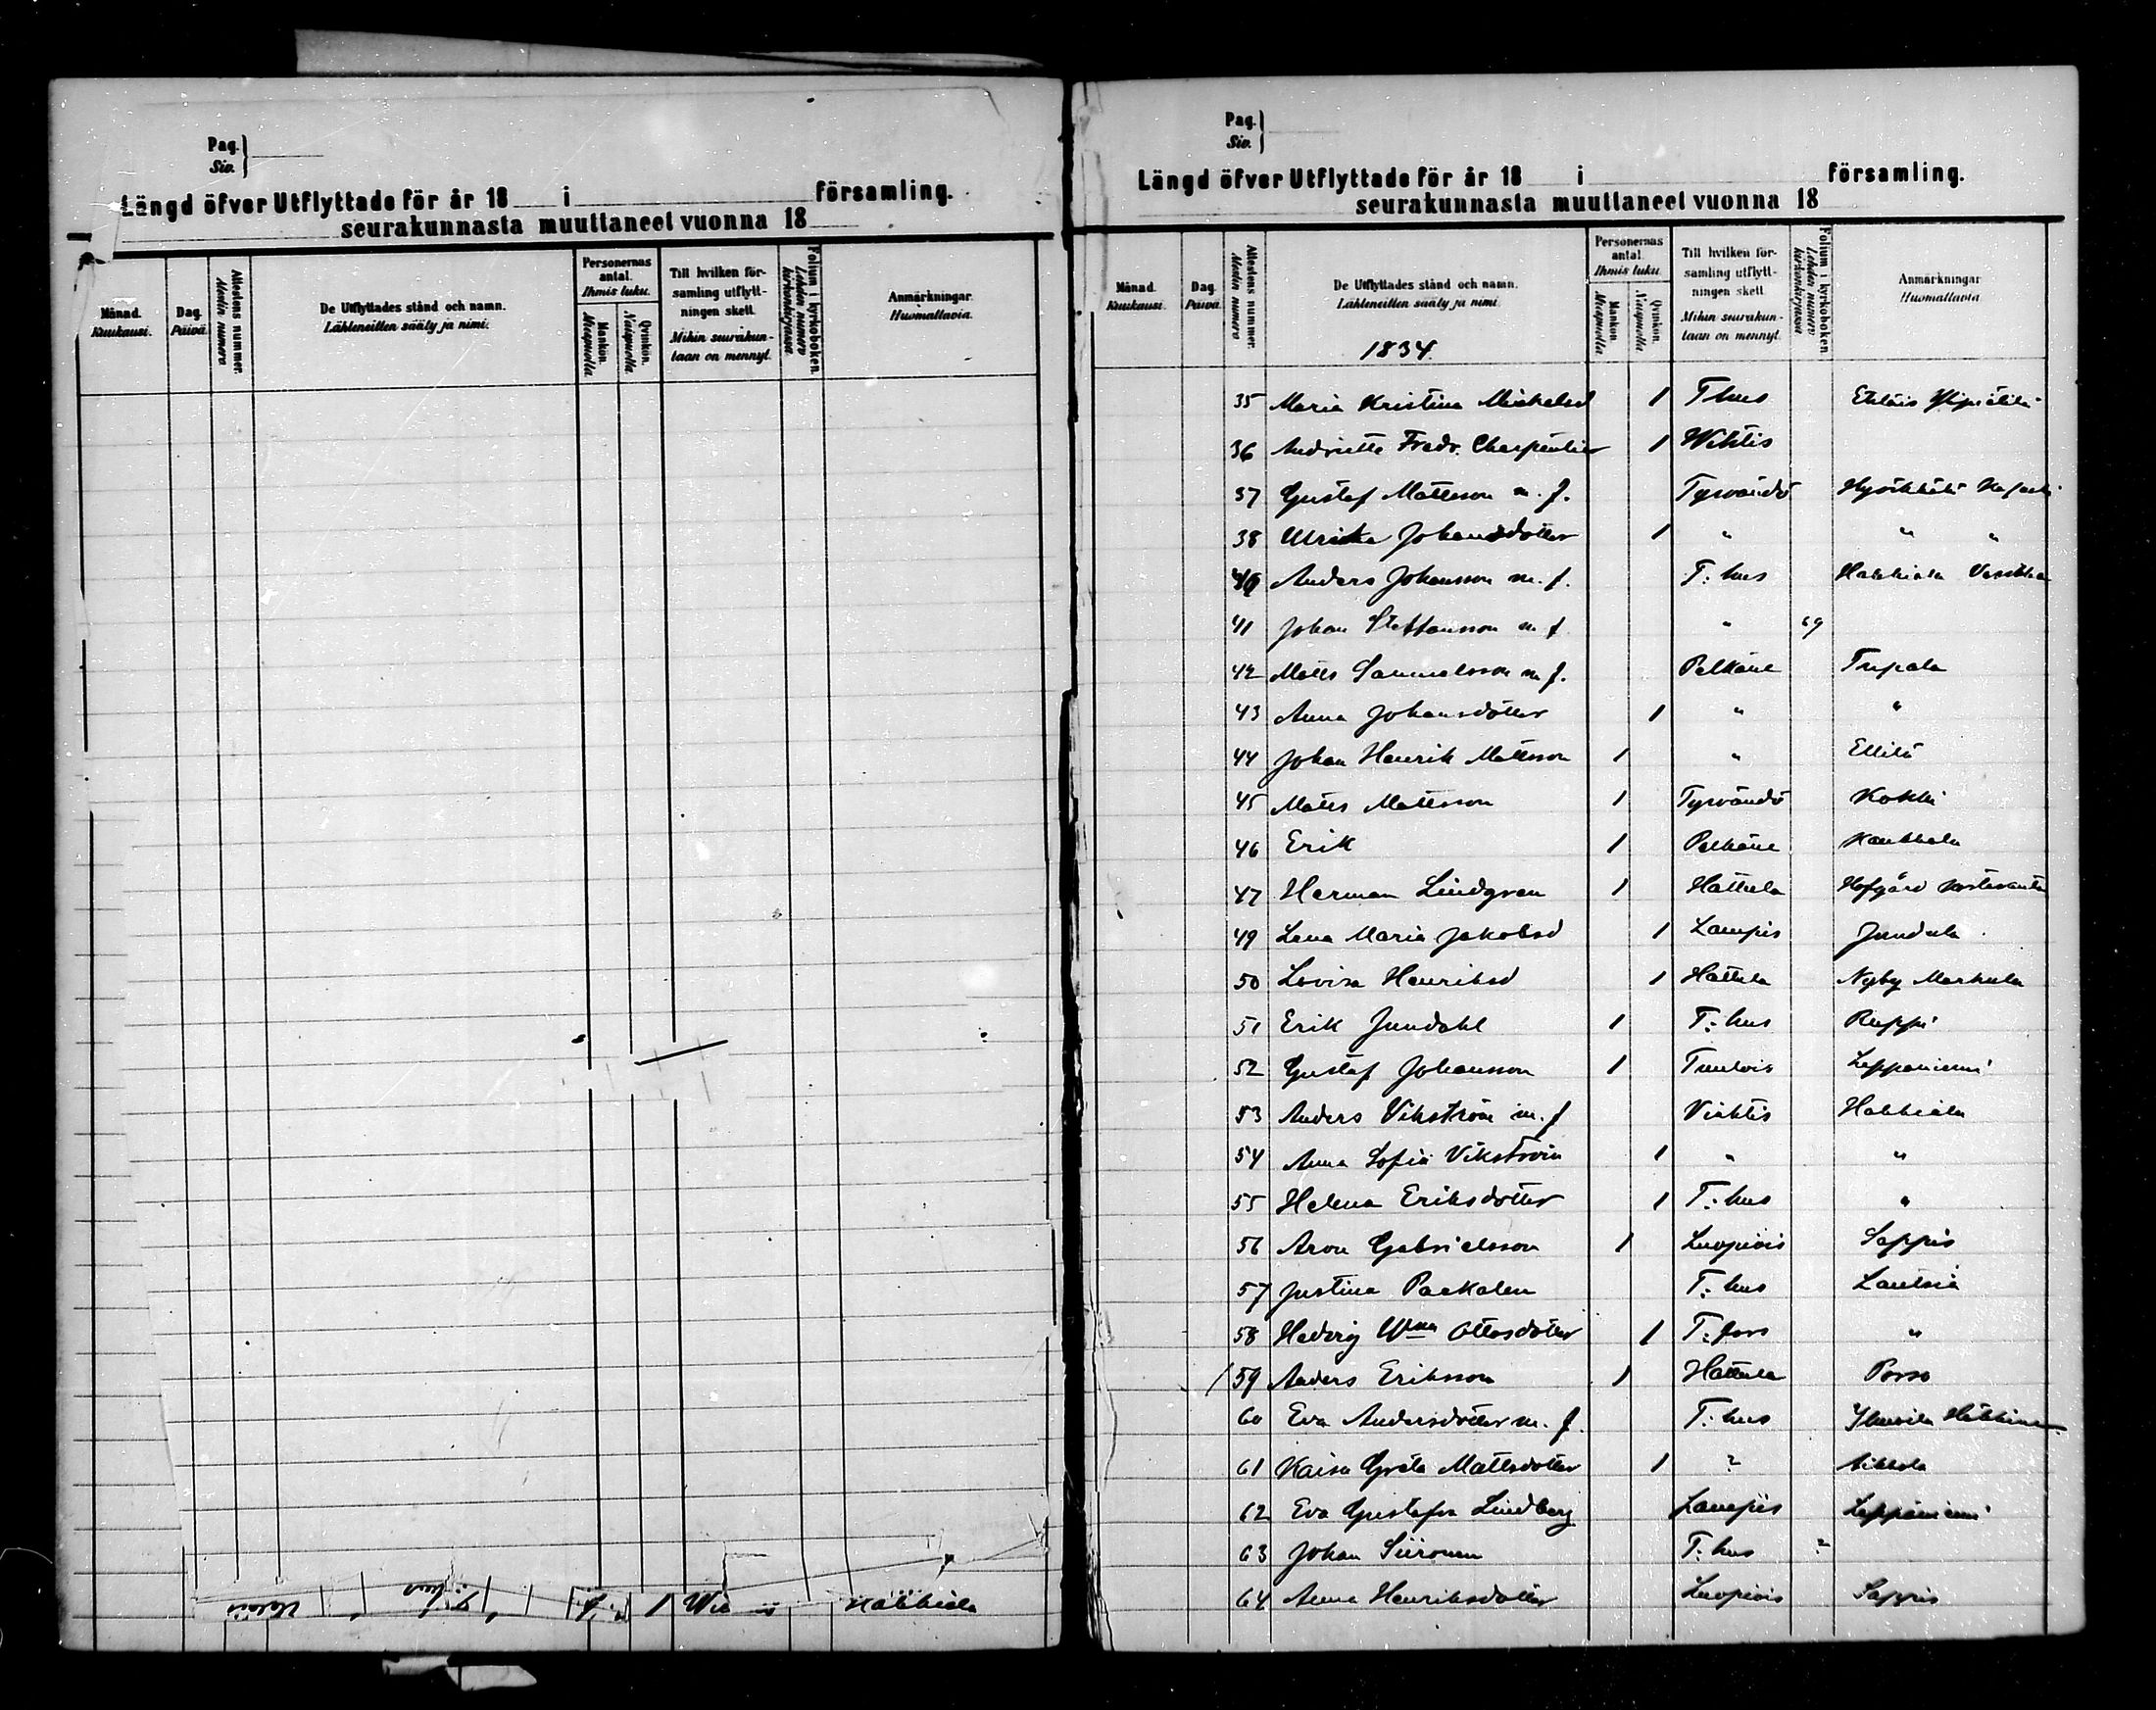 Pag.
Siv.
Längd öfver Utflyttade för år 18 i församling.
seurakunnasta muuttaneet vuonna 18
Månad. Kuukausi.
Dag. Päivä.
Attestens nummer. Alestin numero
De Utflyttades stånd och namn. Lähteneitten sääty ja nimi.
Personernas antal. Ihmis luku.
Mankön. Miespuolia
Qvinkön. Naispuolia
Till hvilken församling utflyttningen skett. Mihin seurakuntaan on mennyt.
Folium i kyrkoboken. Lehden numero kirkonkirjassa
Anmärkningar. Huomattavia.
T. hus 1 Hakkiala
Pag.
Siv.
Längd öfver Utflyttade för år 18 i församling.
seurakunnasta muuttaneet vuonna 18
Månad. Kuukausi.
Dag. Päivä.
Attestens nummer. Alestin numero
De Utflyttades stånd och namn. Lähteneitten sääty ja nimi.
Personernas antal. Ihmis luku.
Mankön. Miespuolia
Qvinkön. Naispuolia
Till hvilken församling utflyttningen skett. Mihin seurakuntaan on mennyt.
Folium i kyrkoboken. Lehden numero kirkonkirjassa
Anmärkningar Huomattavia
1834.
35 Maria Kristina Mickelsd 1 T hus
36 Andriette Fredr. Charpentier 1 Wihtis
37 Gustaf Mattsson m. f. Tyrvändö
38 Ulrika Johansdotter 1 " " "
40 Anders Johansson m. f. T: hus Hakkiala
41 Johan Steffansson m f " 69
42 Matts Samuelsson m f. Pelkäne Tupala
43 Anna Johansdotter 1 " "
44 Johan Henrik Mattsson 1 " Ellilä
45 Matts Mattsson 1 Tyrvändö Kokki
46 Erik 1 Pelkäne Kankkala
47 Herman Lindgren 1 Hattula Hofgård
49 Lena Maria Jakobsd 1 Lampis Jundula
50 Lovisa Henriksd 1 Hattula Nyby Markula
51 Erik Jundahl 1 T: hus Ruppi
52 Gustaf Johansson 1 Tuulois Leppäniemi
53 Anders Vikström m. f Vichtis Hakkiala
54 Anna Sofia Vikström 1 " "
55 Helena Eriksdotter 1 T: hus "
56 Aron Gabrielsson 1 Luopiois Sappis
57 Justina Paekalen T: hus Lautsia
58 Hedvig Wna Ottosdotter 1 T: fors "
59 Anders Eriksson 1 Hattula Porso
60 Eva Andersdotter m. f. T: hus
61 Kaisa Greta Mattsdotter 1 ?
62 Eva Gustafva Lindberg Lampis Leppäniemi
63 Johan Siironen T: hus ?
64 Anna Henriksdotter Luopiois Sappis